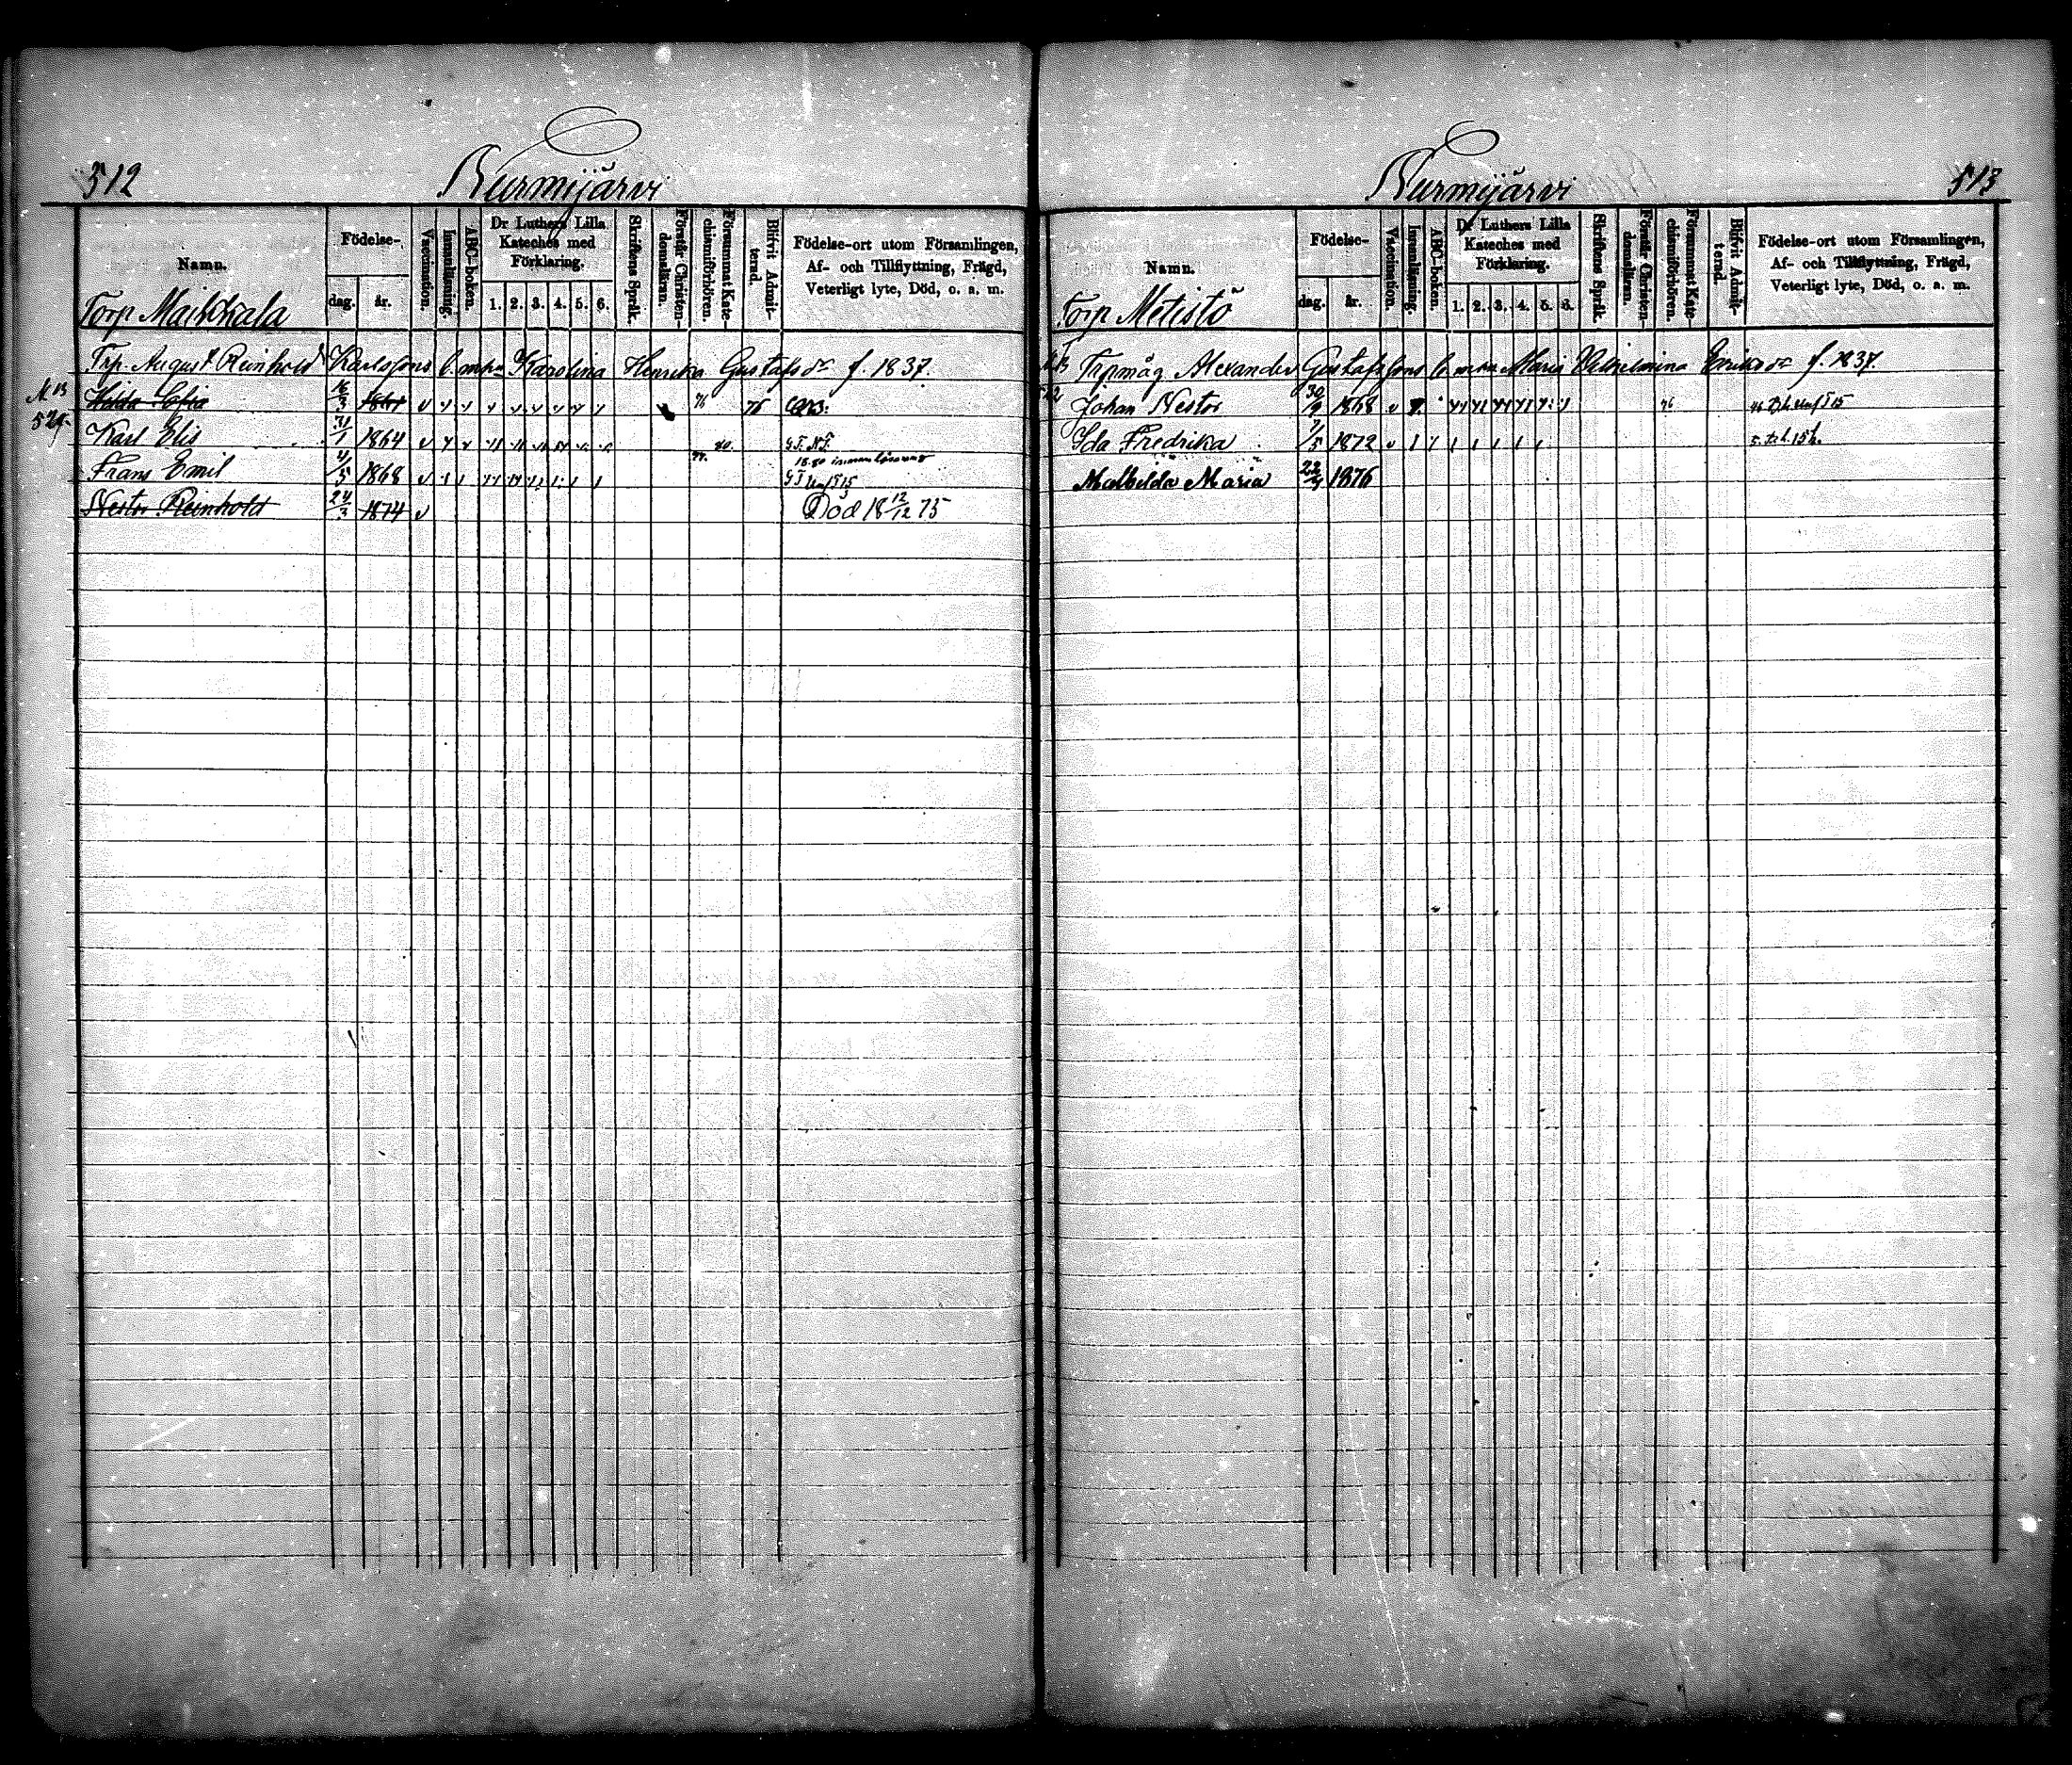 512
Nurmijärvi
Namn.
Födelse-
dag.
år.
Vaccination.
Innanläsning.
ABC-boken.
Dr Luthers Lilla
Kateches med
Förklaring.
1. 2. 3. 4. 5. 6.
Skriftens Språk.
Förstår Christen-
domsläran.
Försummat Kate-
chismiförhören.
Blifvit Admit-
terad.
Födelse-ort utom Församlingen,
Af- och Tillflyttning, Frägd,
Veterligt lyte, Död, o. s. m.
Torp
Trp. August Reinhold Karlssons o. Karolina Henrika Gustafsdr f. 1837.
Hilda Sofia 16/3 76 76
529.
Karl Elis 31/1 1864 80.
Frans Emil 4/5 1868
Nestor Reinhold 24/3 1874 Död 18 12/12 75
513
Nurmijärvi
Namn.
Födelse-
dag.
år.
Vaccination.
Innanläsning.
ABC-boken.
Dr Luthers Lilla
Kateches med
Förklaring.
1. 2. 3. 4. 5. 6.
Skriftens Språk.
Förstår Christen-
domsläran.
Försummat Kate-
chismiförhören.
Blifvit Admit-
terad.
Födelse-ort utom Församlingen,
Af- och Tillflyttning, Frägd,
Veterligt lyte, Död, o. s. m.
Torp Metistö
Trpmåg Alexander Gustafssons o. Maria Vilhelmina Eriksdr f. 1837.
Johan Nestor 30/9 1868 76
Ida Fredrika 7/5 1872
Mathilda Maria 1876